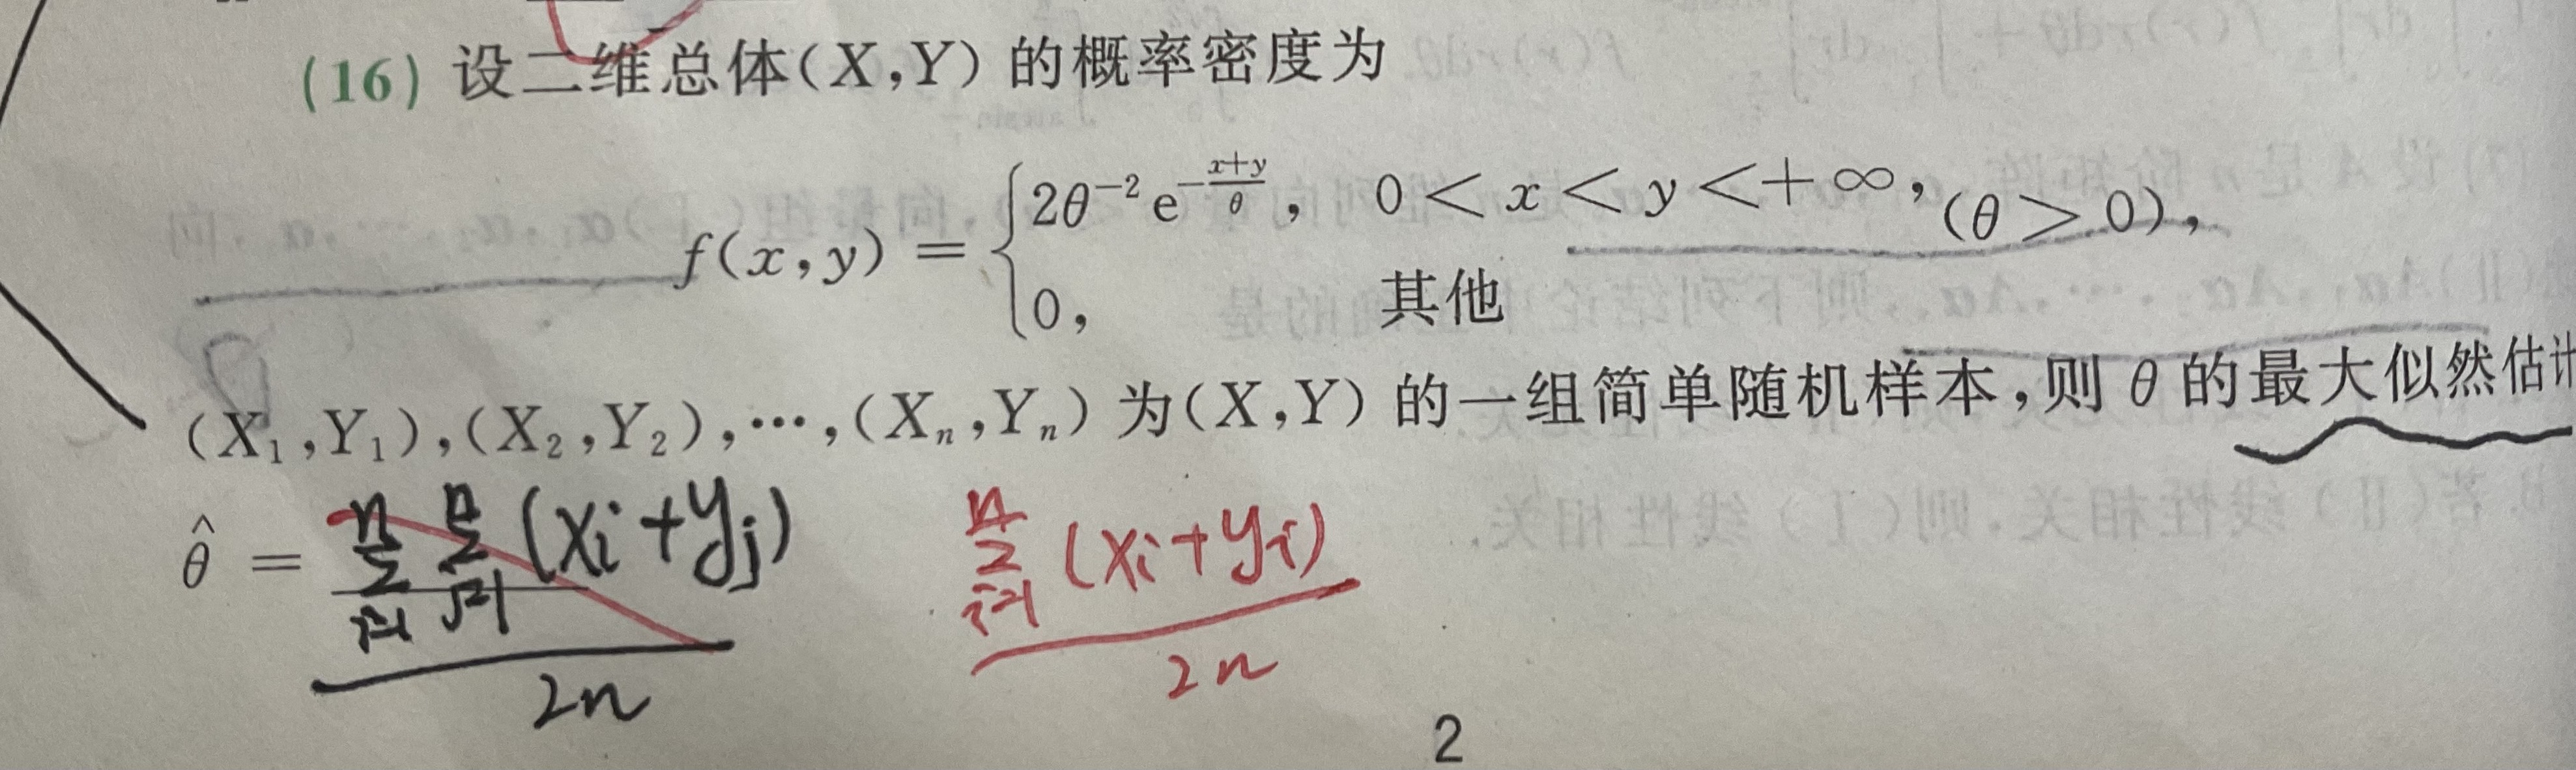 (16) 设二维总体(X,Y) 的概率密度为
f(x,y) = { 2θ⁻² e^{-\frac{x+y}{θ}}, 0 < x < y < +∞, (θ > 0),
0, 其他
(X₁,Y₁),(X₂,Y₂),…,(Xₙ,Yₙ) 为(X,Y) 的一组简单随机样本,则 θ 的最大似然估计
θ̂ = \frac{\sum_{i=1}^{n} \sum_{j=1}^{n} (xi+yj)}{2n} \frac{\sum_{i=1}^{n} (xi+yi)}{2n}
2